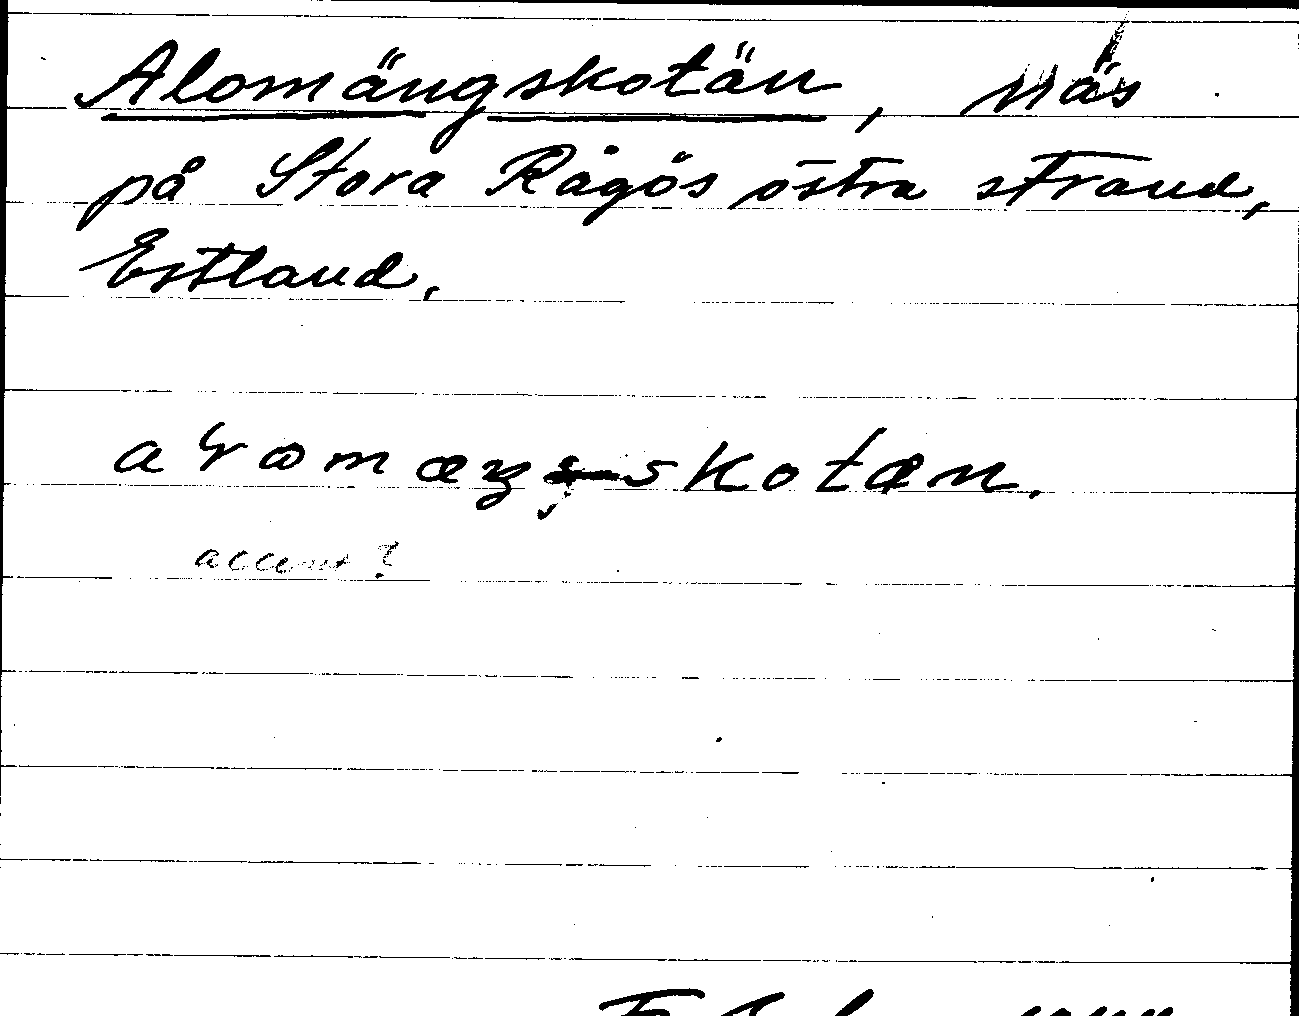 Alomängskotän, näs
på Stora Rågös östra strand,
Estland.
skotæn.
accent?